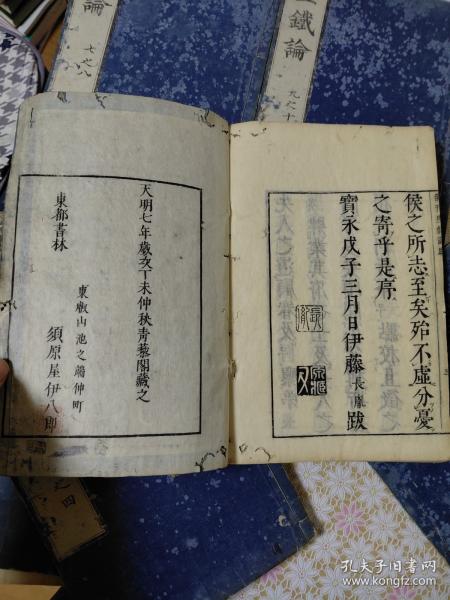 論
七之八
鐵論
九之十
侯之所志至矣殆不虛分憂
之寄乎是序
寶永戊子三月日伊藤長胤跋
天明七年歲次丁未仲秋青藜閣藏之
東叡山池之端仲町
東都書林
須原屋伊八郎
之四
孔夫子旧书网
www.kongfz.com